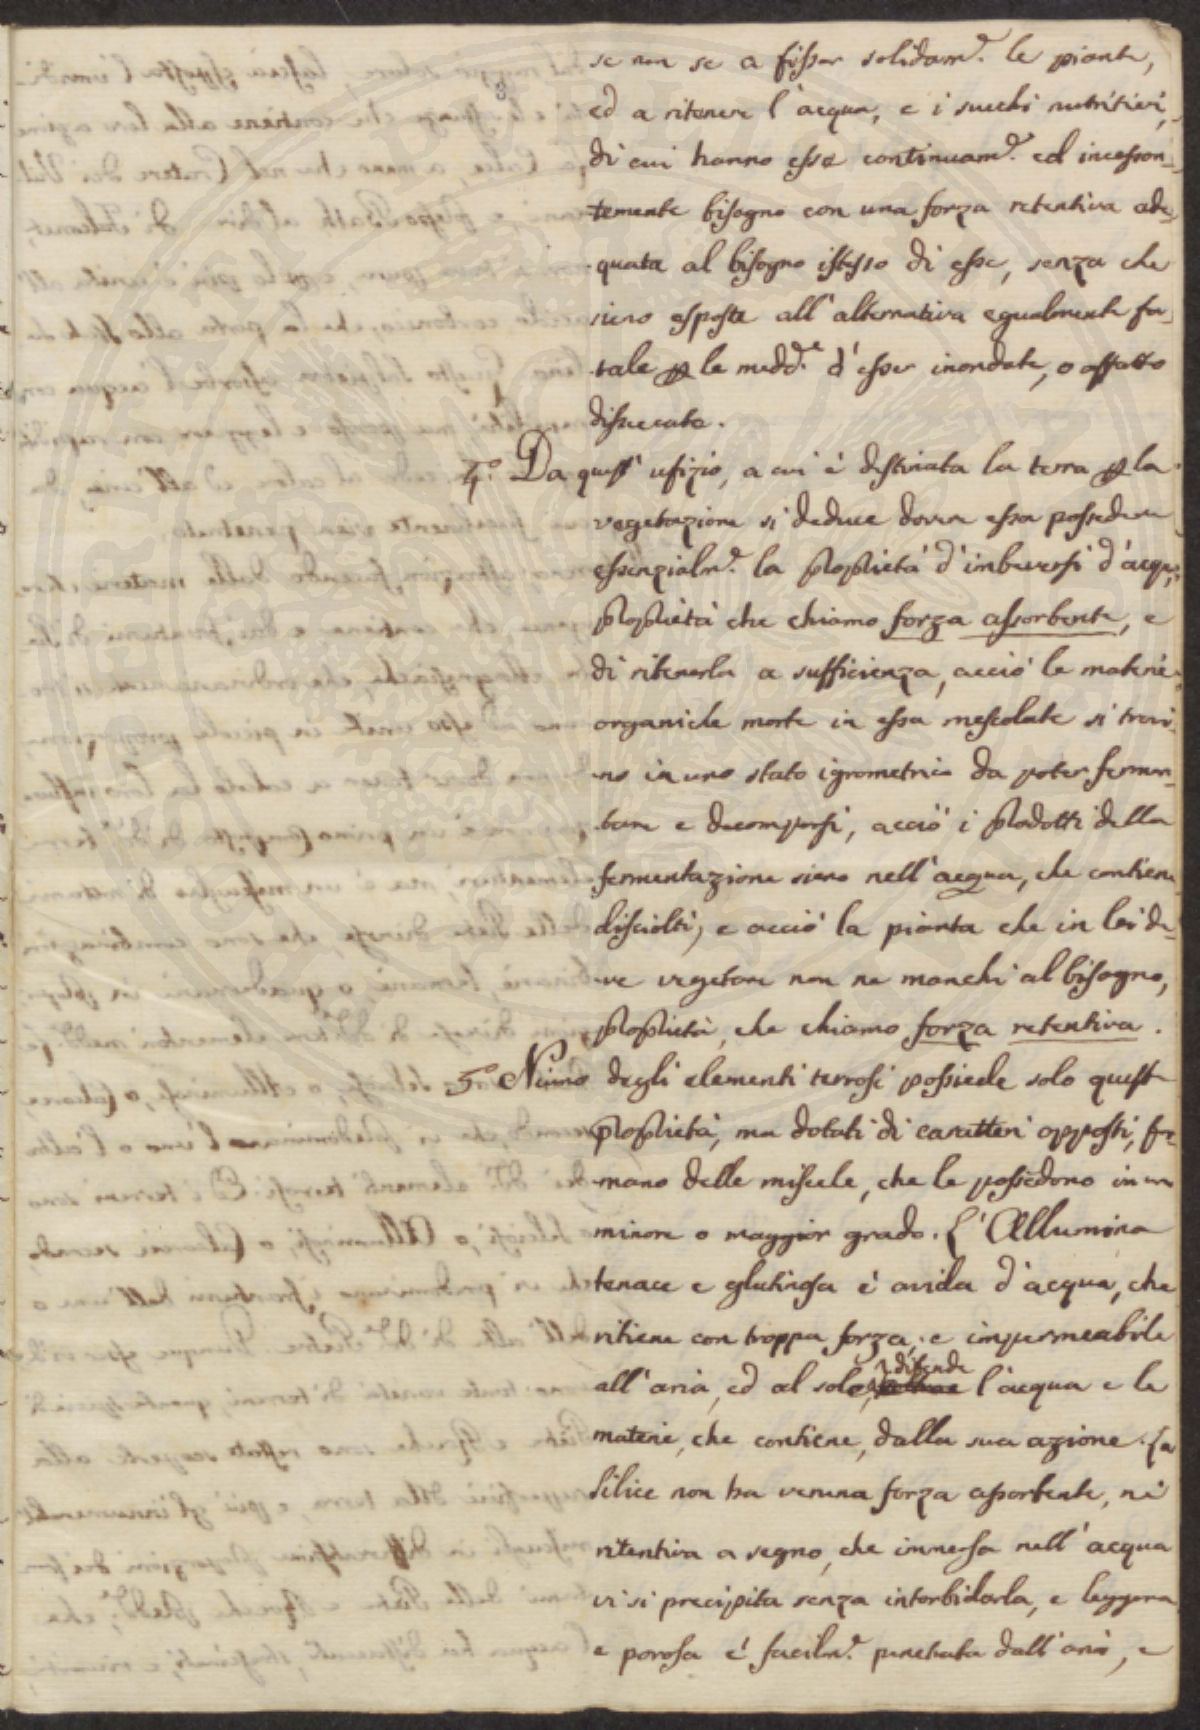 se non se a fissar solidam.e le piante,
ed a ritenere l'acqua, e i succhi nutritivi,
di cui hanno esse continuam.e ed incessan-
temente bisogno con una forza retentiva ade-
quata al bisogno istesso di esse, senza che
sieno esposte all'alternativa egualmente fa-
tale p le medd.e d'esser inondate, o affatto
disseccate.
4.o Da quest' ufizio, a cui è destinata la terra p la
vegetazione si deduce dovere essa possedere
essenzialm.e la proprietà d'imbeversi d'acqua,
proprietà che chiamo forza assorbente, e
di ritenerla a sufficienza, acciò le materie
organiche morte in essa mescolate si trovi-
no in uno stato igrometrico da poter fermen-
tare e decomporsi, acciò i prodotti della
fermentazione sieno nell'acqua, che contiene
disciolti, e acciò la pianta che in lei de-
ve vegetare non ne manchi al bisogno,
proprietà, che chiamo forza retentiva.
5.o Niuno degli elementi terrosi possiede solo queste
proprietà, ma dotati di caratteri opposti, for-
mano delle miscele, che le possedono in un
minore o maggior grado. L'Allumina
tenace e glutinosa è avida d'acqua, che
ritiene con troppa forza, e impermeabile
all'aria, ed al sole, difende l'acqua e le
materie, che contiene, dalla sua azione. La
silice non ha veruna forza assorbente, nè
ritentiva a segno, che immersa nell'acqua
vi si precipita senza intorbidarla, e leggera
e porosa è facilm.e penetrata dall'aria, e